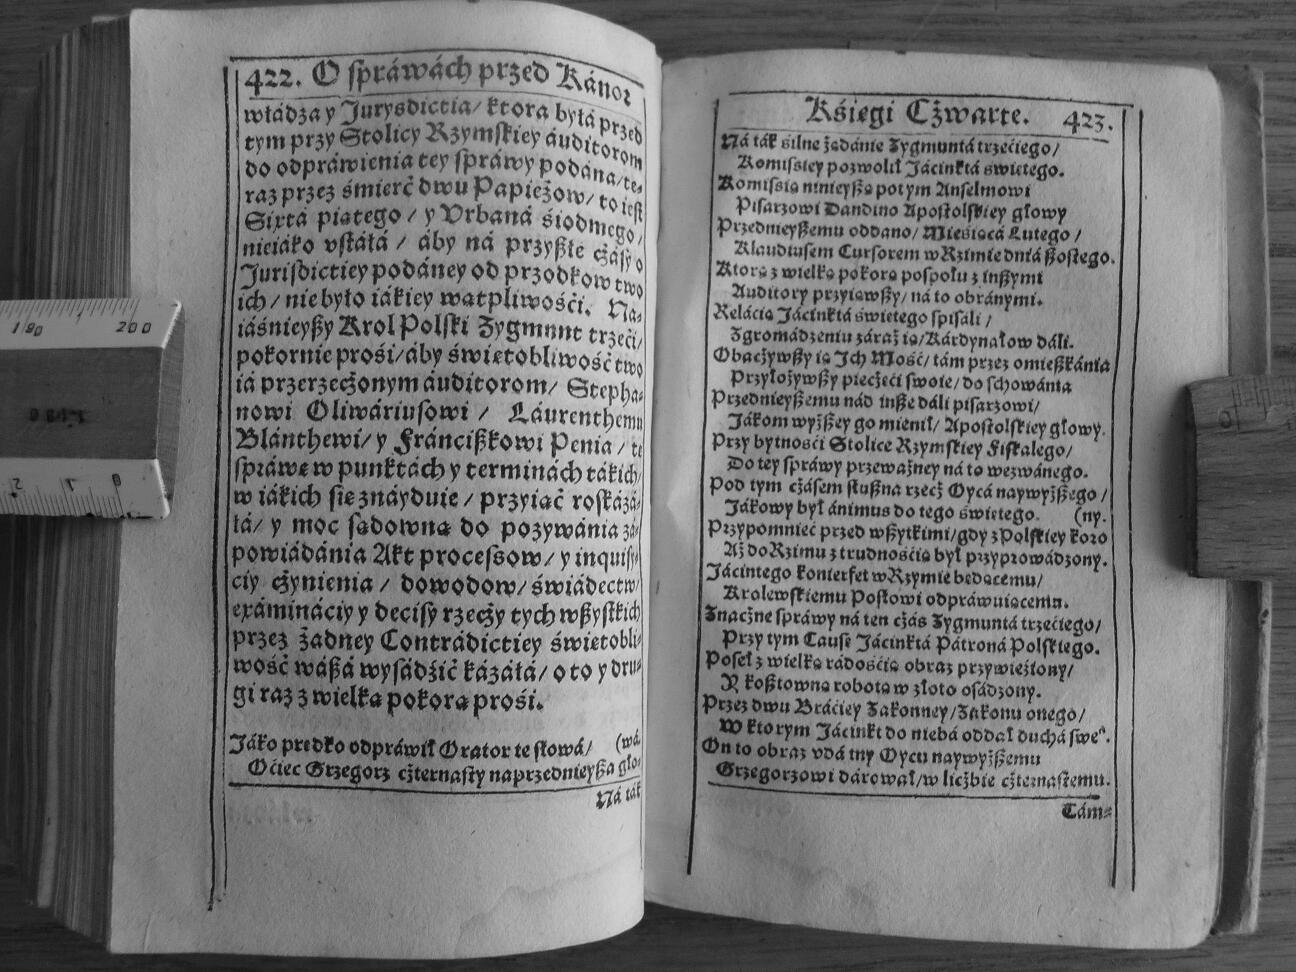 422. O spráwách przed Kánoz
władza y Jurysdictia/ ktora byłá przed
tym przy Stolicy Rzymskiey áuditorom
do odpráwienia tey spráwy podána/te-
raz przez śmierć dwu Papieżow/ to iest
Sixtá piątego/ y Vrbaná śiodmego/
nieiáko vstáłá / áby ná przyßłe cżásy o
Jurisdictiey podáney od przodkow two
ich/ nie było iákiey wątpliwośći. Na-
iáśnieyßy Krol Polski Zygmunt trzeći/
pokornie prośi/áby świętobliwość two
iá przerzecżonym áuditorom/ Stepha-
nowi Oliwáriusowi / Láurenthemu
Blánthewi/ y Fránćißkowi Penia / tę
spráwę w punktách y terminách tákich/
w iákich się znáyduie / przyiąć roskázá-
łá/ y moc sądowną do pozywánia zá-
powiádánia Akt processow/ y inquisy-
ciy cżynienia / dowodow/ świádectw/
exámináciy y decisy rzecży tych wßystkich
przez żadney Contrádictiey świętobli-
wość wáßá wysádźić kázáłá/ o to y dru-
gi raz z wielką pokorą prośi.
Jáko prędko odpráwił Orator te słowá/ (wá.
Oćiec Grzegorz cżternasty naprzednieyßa gło-
Ná ták
Kśięgi Cżwarte. 423.
Ná ták śilne żądánie Zygmuntá trzećiego/
Komissiey pozwolił Jácinktá świętego.
Komissia ninieyßa potym Anselmowi
Pisarzowi Dandino Apostolskiey głowy
Przednieyßemu oddano/ Mieśiąca Lutego /
Klaudiusem Cursorem w Rzimie dniá ßostego.
Którą z wielką pokorą pospołu z inßymi
Auditory przyiąwßy/ ná to obránymi.
Relácią Jácinktá świętego spisáli /
Zgromádzeniu záraz ią/Kárdynałow dáli.
Obacżywßy ią Jch Mość/ tám przez omießkánia
Przyłożywßy piecżęći swoie/ do schowánia
Przednieyßemu nád inße dáli pisarzowi/
Jákom wyżßey go mienił/ Apostolskiey głowy.
Przy bytnośći Stolice Rzymskiey Fiskalego/
Do tey spráwy przeważney ná to wezwánego.
Pod tym cżásem słußna rzecż Oycá naywyżßego /
Jákowy był ánimus do tego świętego. (ny.
Przypomnieć przed wßytkimi/gdy z Polskiey koro
Aż do Rzimu z trudnośćią był przyprowádzony.
Jácintego konterfet w Rzymie będącemu/
Krolewskiemu Posłowi odpráwuiącemu.
Znacżne spráwy ná ten cżás Zygmuntá trzećiego/
Przy tym Causę Jácinktá Pátroná Polskiego.
Poseł z wielką rádośćią obraz przywieźiony/
Y koßtowną robotą w złoto osádzony.
Przez dwu Bráciey Zakonney/Zakonu onego/
W ktorym Jácinkt do niebá oddał duchá swe°.
On to obraz vdátny Oycu naywyżßemu
Grzegorzowi dárował/w licżbie cżternastemu.
Tám-